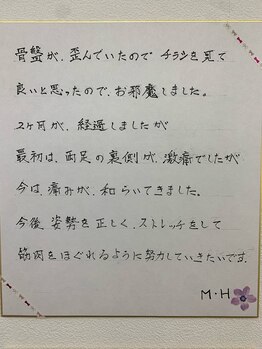 骨盤が、歪んでいたので チラシを見て
良いと思ったので、お邪魔しました。
2ヶ月が、経過しましたが
最初は、両足の裏側が、激痛でしたが
今は、痛みが、和らいてきました。
今後 姿勢を正しく、ストレッチをして
筋肉をほぐれるように努力していきたいです。
M・H